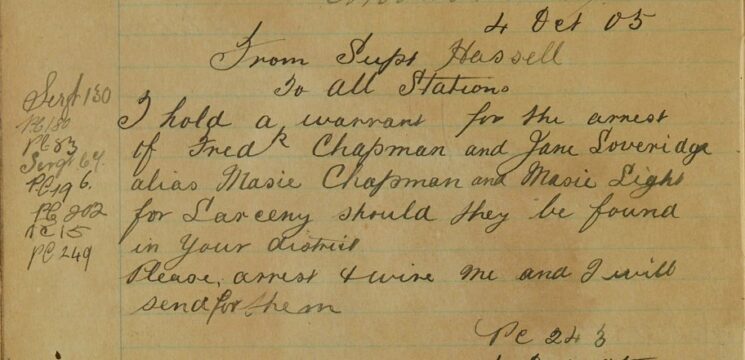 4 Oct 05
From Supt Hassell
To all Stations
I hold a warrant for the arrest
of Fredk Chapman and Jane Loveridge
alias Masie Chapman and Masie Light
for Larceny should they be found
in Your district
Please, arrest & wire me and I will
send for them
PC 243
Sergt 130
PC 180
PC 83
Sergt 64
PC 196.
PC 202
PC 15
PC 249